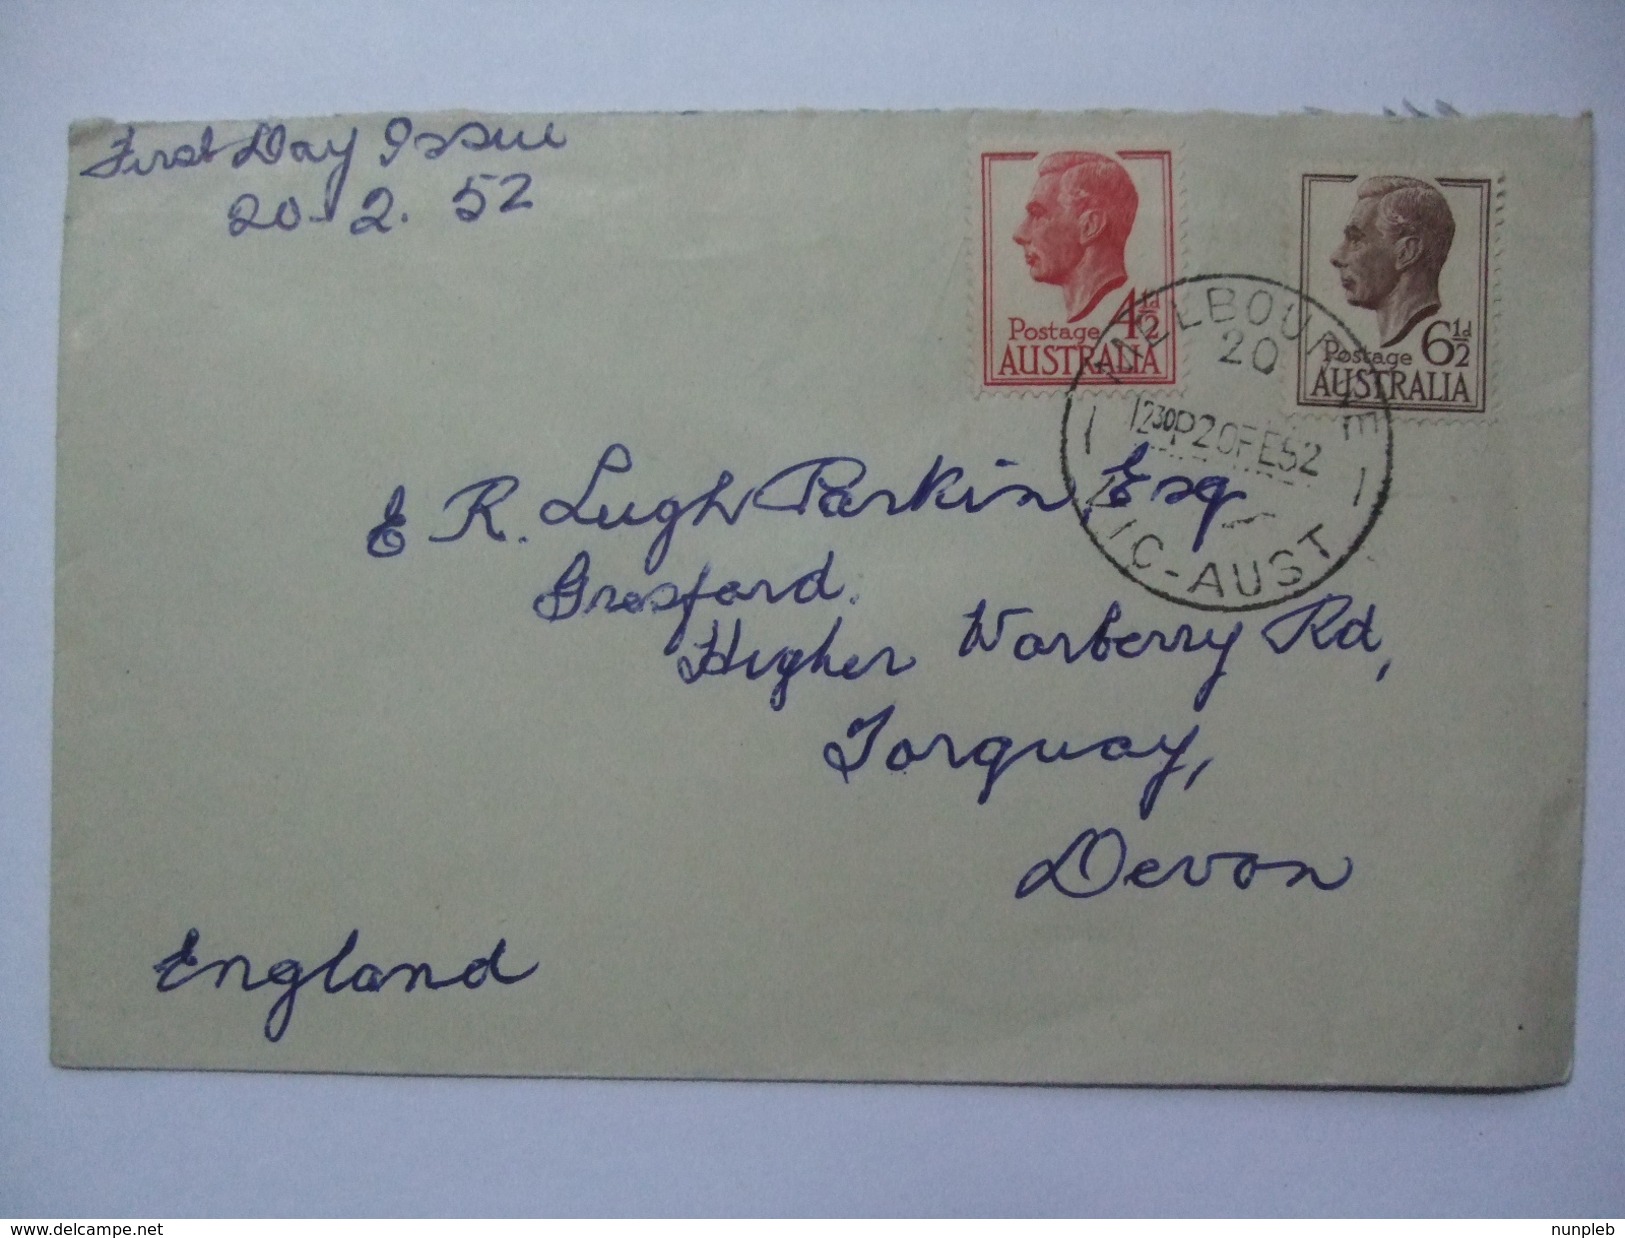 First Day Issue
20-2. 52
4½d
Postage
AUSTRALIA
6½d
Postage
AUSTRALIA
MELBOURNE
20
1230P20FE52
VIC-AUST
E R. Lugh Parkin, Esq
Gresford.
Higher Warberry Rd,
Torquay,
Devon
England
www.delcampe.net
nunpleb